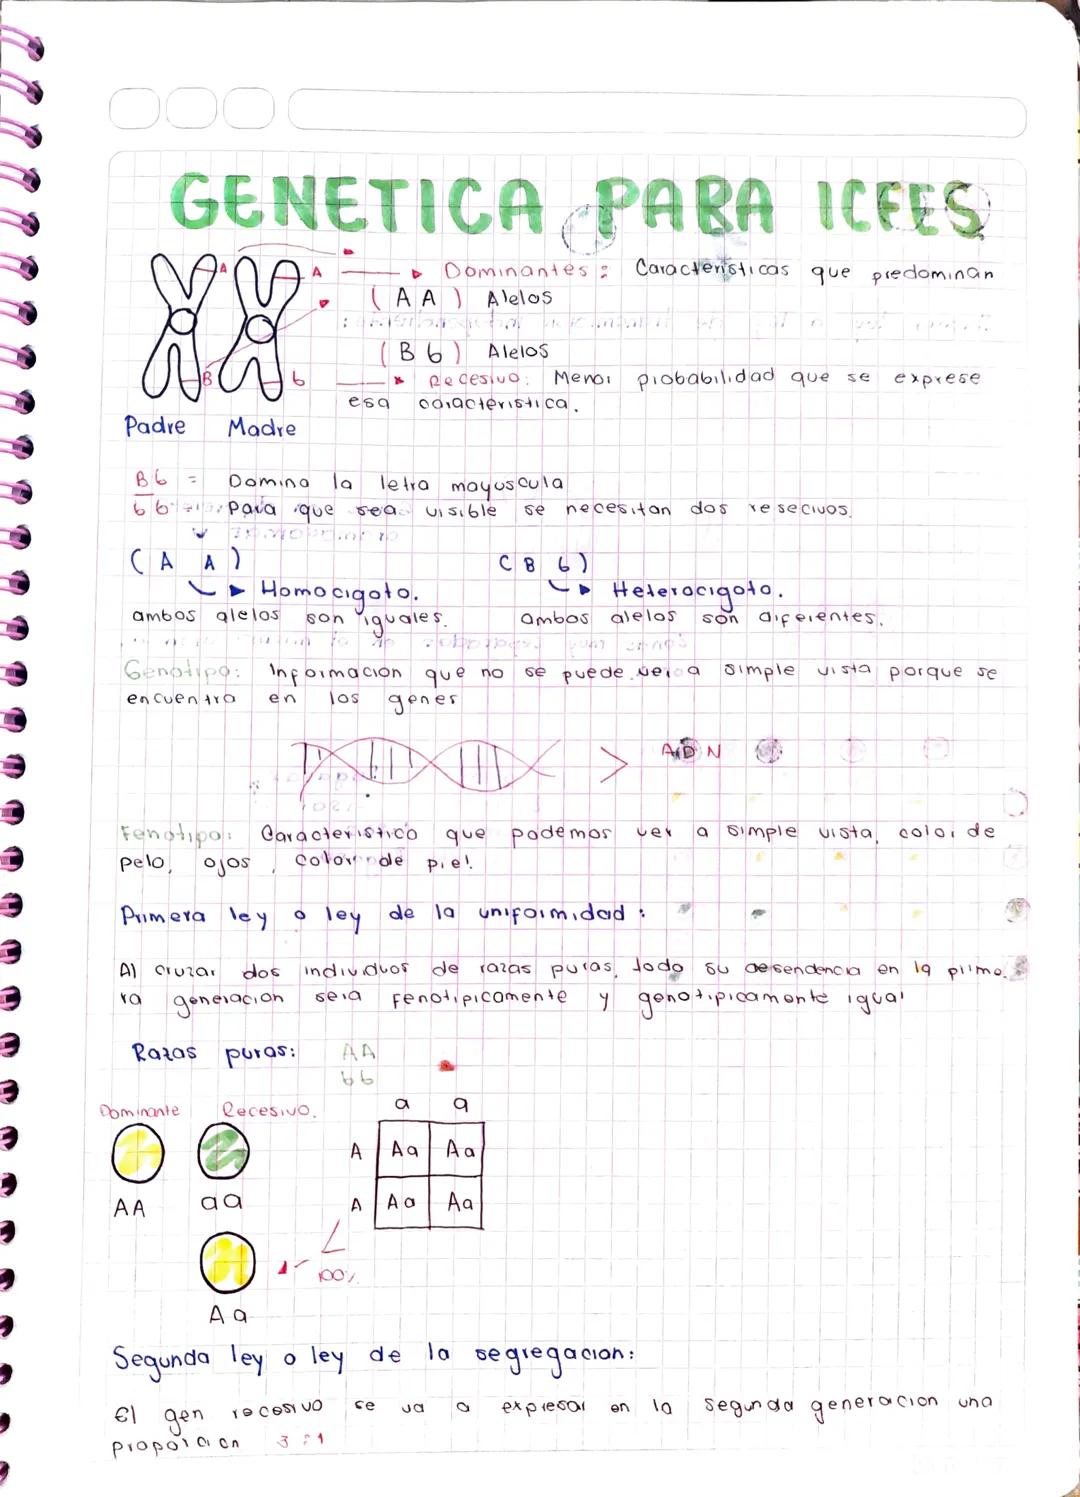 GENETICA PARA ICFES
A A Dominantes: Caracteristicas que predominan
(AA) Alelos
(Bb) Alelos
B b Recesivo: Menor probabilidad que se exprese
esa caracteristica.
Padre Madre
Bb = Domina la letra mayuscula
bb = Para que sea visible se necesitan dos resecivos.
(A A) (B b)
Homocigoto. Heterocigoto.
ambos alelos son iguales. Ambos alelos son diferentes.
Genotipo: Informacion que no se puede ver a simple vista porque se
encuentra en los genes
> ADN
Fenotipo: Caracteristico que podemos ver a simple vista, color de
pelo, ojos, color de piel
Primera ley o ley de la uniformidad:
Al cruzar dos individuos de razas puras, todo su desendencia en la prime
ra generacion sera fenotipicamente y genotipicamente igual
Razas puras: AA
bb
Dominante Recesivo. a a
A Aa Aa
AA aa A Aa Aa
100%
Aa
Segunda ley o ley de la segregacion:
El gen recesivo se va a expresar en la segunda generacion una
proporcion 3:1